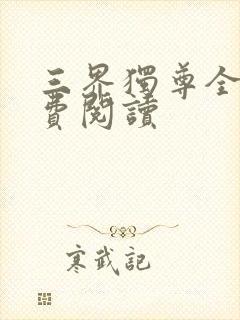 三界獨尊全
費閱讀
寒武記